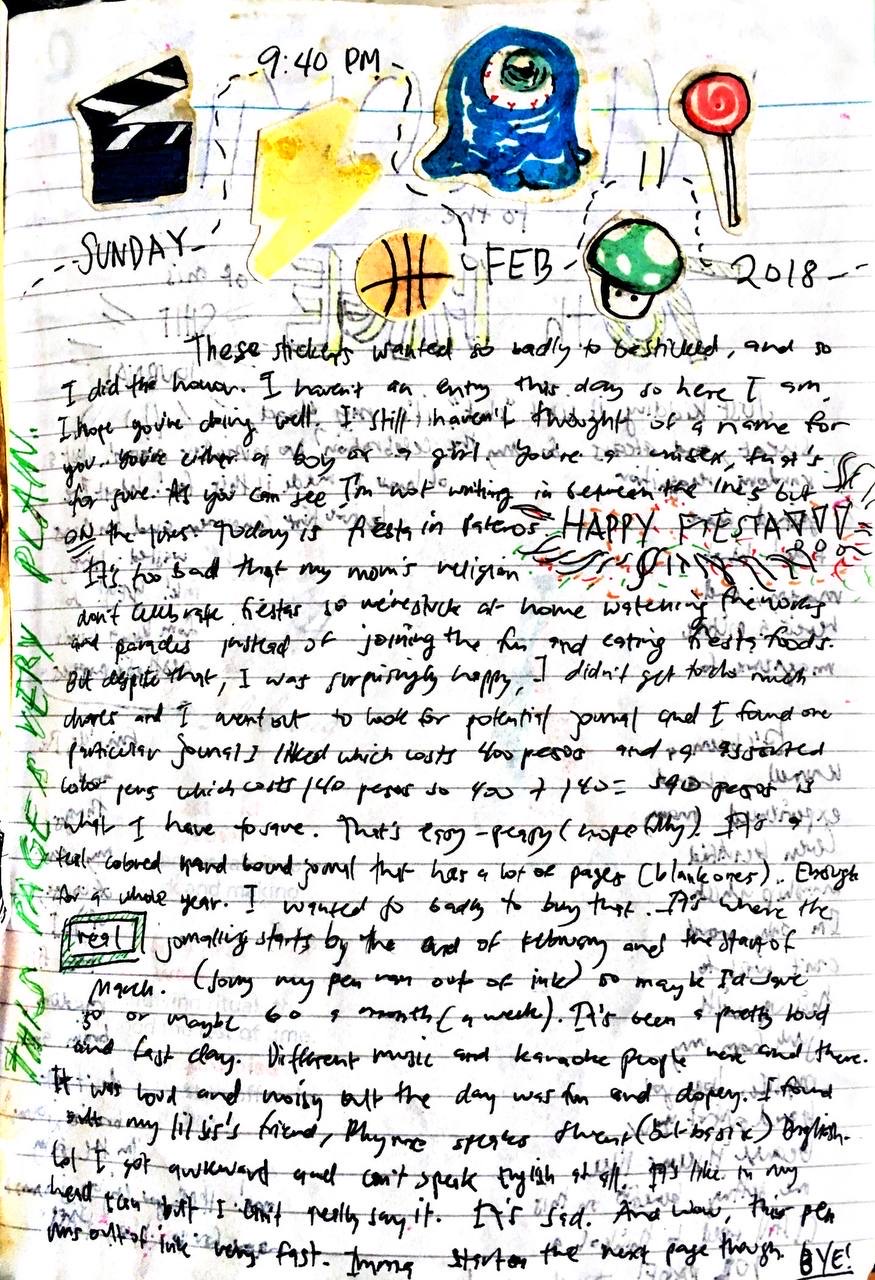 9:40 PM
SUNDAY FEB 11 2018
These stickers wanted so badly to be sticked, and so
I did the honor. I haven't an entry this day so here I am.
I hope you're doing well. I still haven't thought of a name for
you. You're either a boy or a girl. You're a unisex, that's
for sure. As you can see I'm not writing in between the lines but
ON the lines. Today is fiesta in Pateros HAPPY FIESTA
It's too bad that my mom's religion
don't celebrate fiestas so we're stuck at home watching fireworks
and parades instead of joining the fun and eating fiesta foods.
But despite that, I was surprisingly happy, I didn't get to do much
chores and I went out to look for potential journal and I found one
particular journal I liked which costs 400 pesos and a assorted
color pens which costs 140 pesos so 400 + 140 = 540 pesos is
what I have to save. That's easy-peasy (hopefully). It's a
teal colored hard bound jornal that has a lot of pages (blank ones). Enough
for a whole year. I wanted so badly to buy that. It's where the
real jornalling starts by the end of February and the start of
March. (Sorry my pen ran out of ink) so maybe I'd save
50 or maybe 60 a month (a week). It's been a pretty loud
and fast day. Different music and karaoke people here and there.
It was loud and noisy but the day was fun and dopey. I found
my lil sis's friend, Rhyme speaks fluent (but basic) English.
Lol I got awkward and can't speak English at all. It's like in my
head I can but I can't really say it. It's sad. And wow, this pen
runs out of ink very fast. Imma start on the next page though. BYE!
THIS PAGE IS VERY PLAIN.